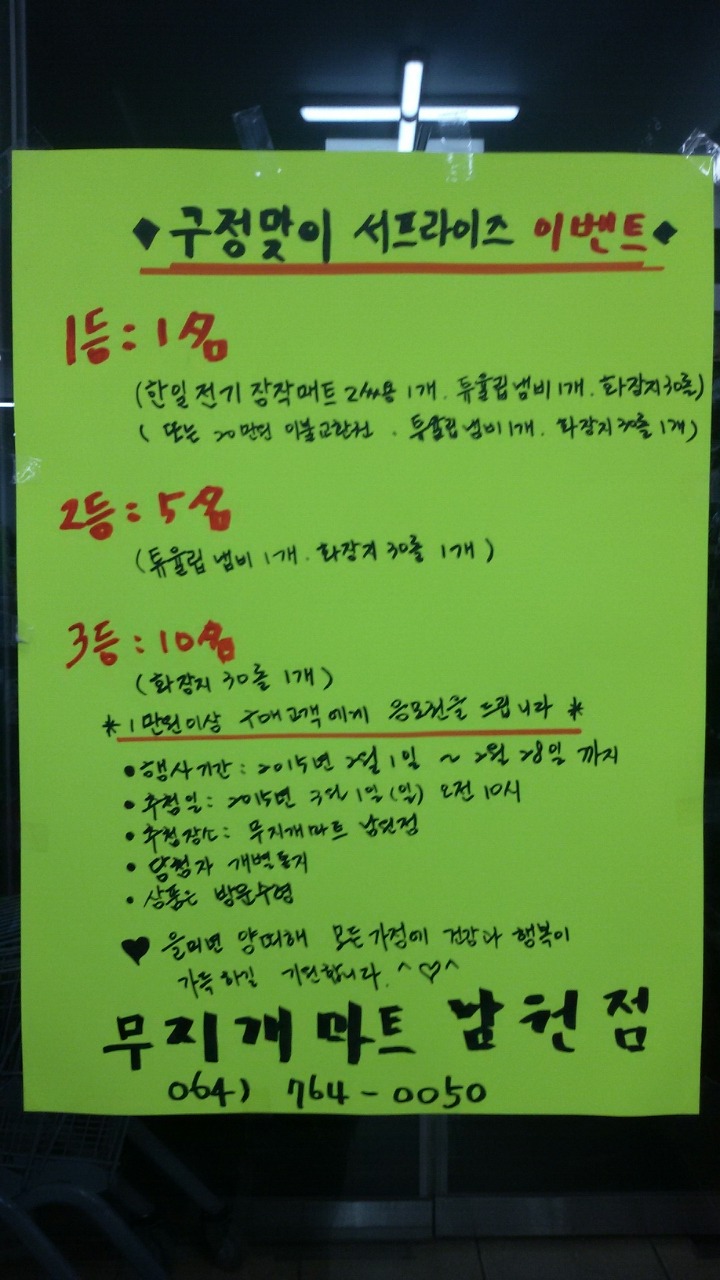 ◆구정맞이 서프라이즈 이벤트◆
1등 : 1名
(한일전기 장작매트 2人용 1개. 튜울립냄비 1개. 화장지 30롤)
( 또는 20만원 이불교환권 . 튜울립냄비 1개. 화장지 30롤 1개)
2등 : 5名
(튜울립 냄비 1개. 화장지 30롤 1개)
3등 : 10名
(화장지 30롤 1개)
*1만원이상 구매고객에게 응모권을 드립니다 *
• 행사기간 : 2015년 2월 1일 ~ 2월 28일 까지
• 추첨일 : 2015년 3월 1일 (일) 오전 10시
• 추첨장소 : 무지개마트 남원점
• 당첨자 개별통지
• 상품은 방문수령
♥ 을미년 양띠해 모든가정에 건강과 행복이
가득하길 기원합니다. ^♡^
무지개마트 남원점
064) 764-0050